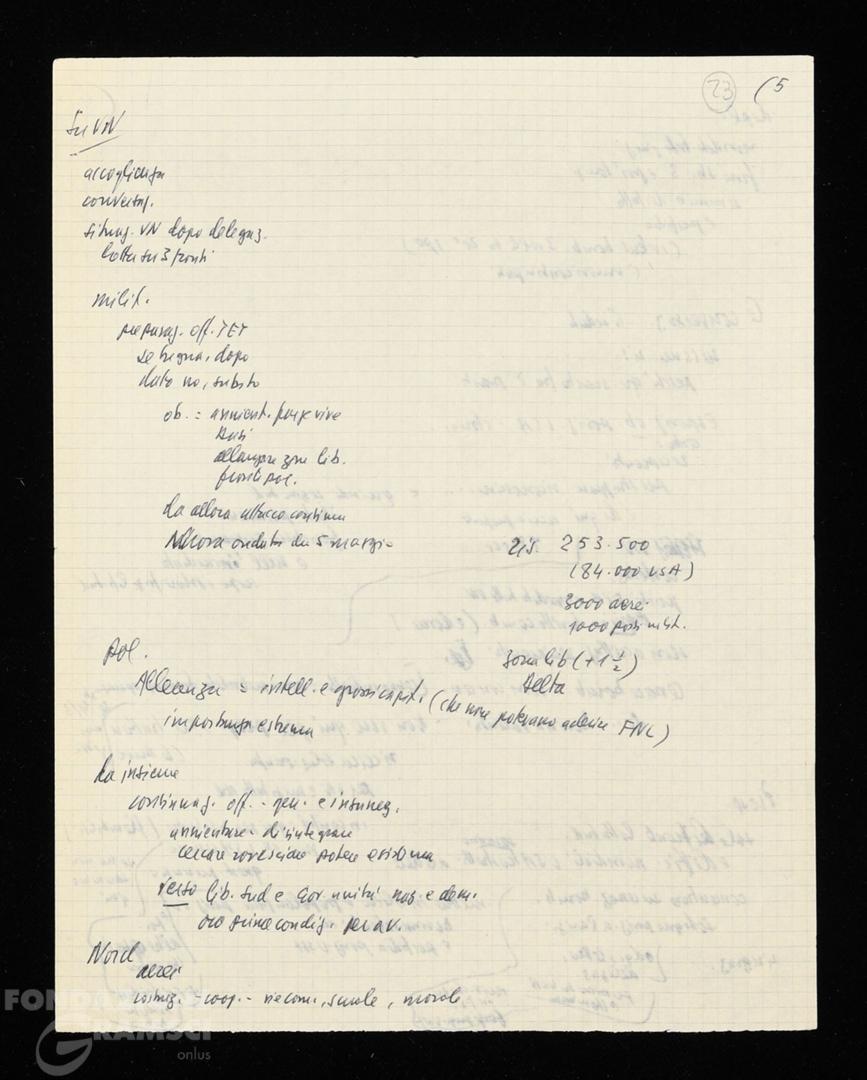 23 (5
Su VN
accoglienza
conversaz.
situaz. VN dopo delegaz.
lotta su 3 fronti
milit.
preparaz. off. TET
se tregua, dopo
dato no, subito
ob. = annient. forze vive
basi
allargare zone lib.
fronte pol.
da allora attacco continuo
Ancora ondata da 5 marzo
253.500
(84.000 USA)
3000 aerei
1000 posti milit.
pol.
zona lib (+ 1 1/2)
Delta
Alleanza = intell. e grossi capit. (che non potevano aderire FNL)
importanza estrema
Da insieme
continuaz. off. - gen. e insurrez.
annientare - disintegrare
cercare rovesciare potere esistono
verso lib. Sud e Gov unità naz. e dem.
ora prime condiz. per av.
Nord
aerei
costruz. - coop. - scuole, morale
FONDO
GRAMSCI
onlus